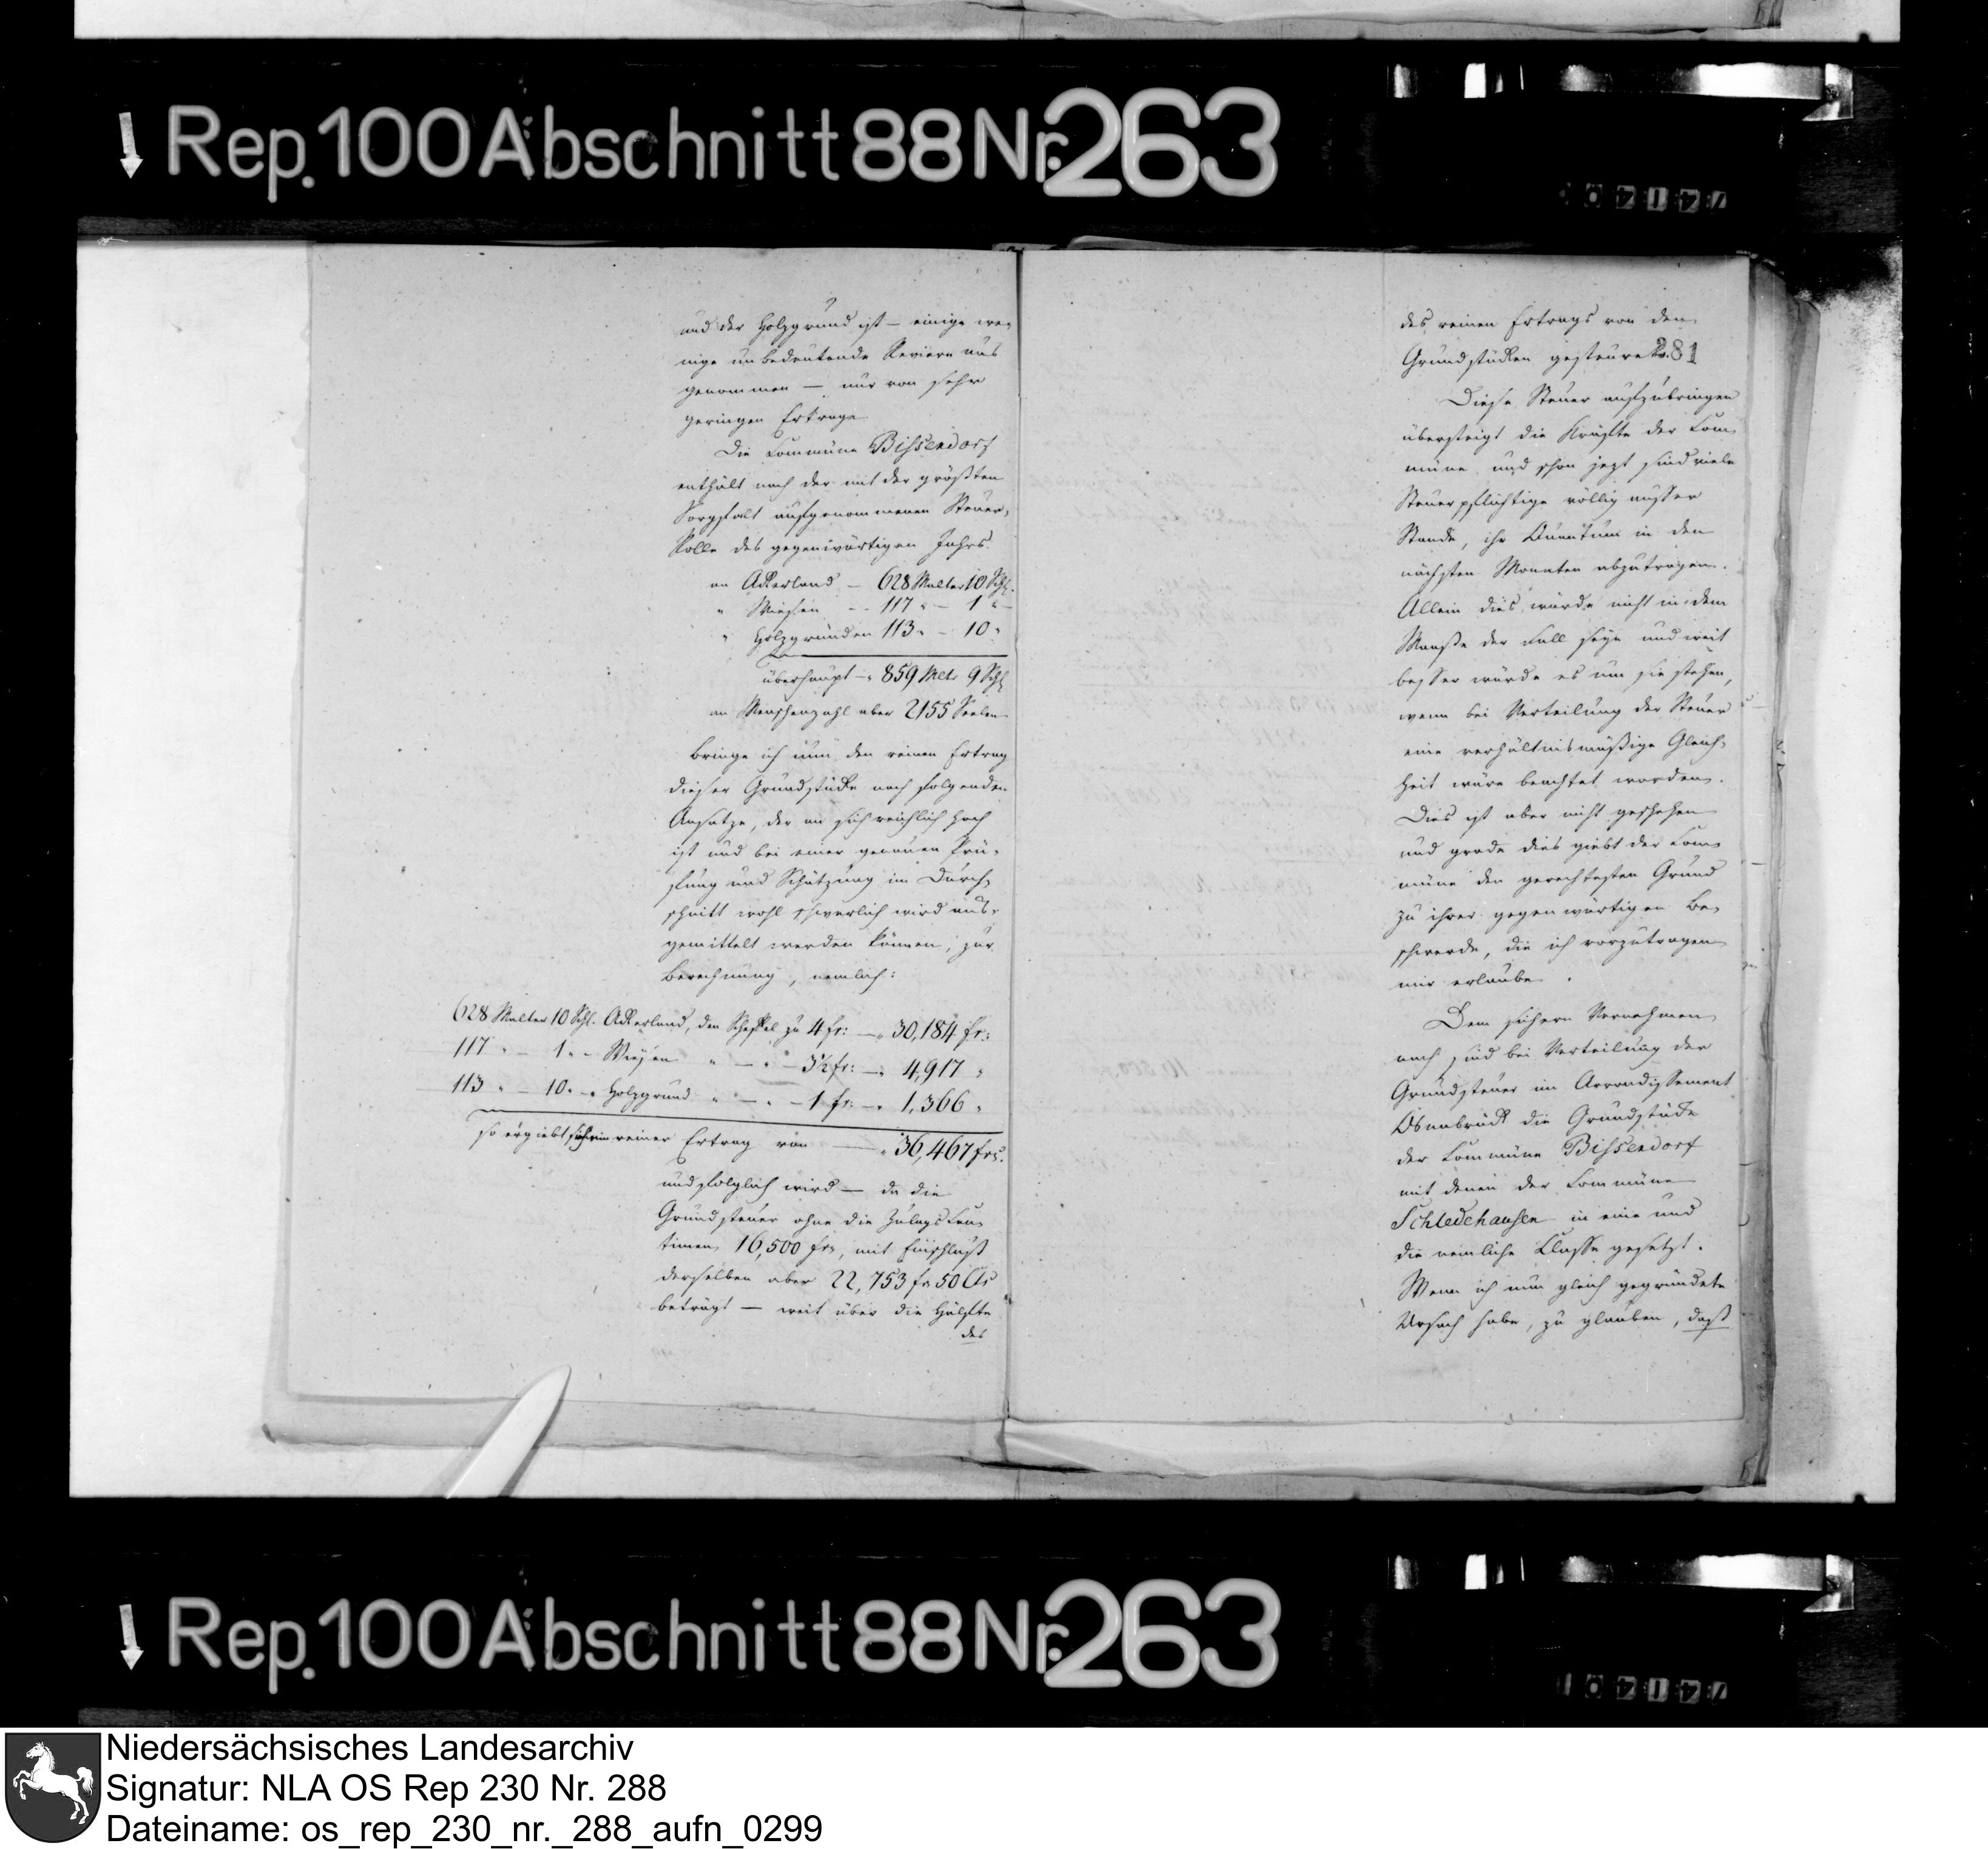 Rep. 100 Abschnitt 88 Nr. 263
und der Holzgrund ist — einige we-
nige unbedeutende Reviere aus
genommen — nur von sehr
geringen Ertrage
Die Commüne Bissendorf
enthält nach der mit der größten
Sorgfalt aufgenommenen Steuer-
Rolle des gegenwärtigen Jahrs
an Ackerland — 628 Malter 10 Schl.
" Wiesen — 117 " — 1 "
" Holzgründen 113 " — 10 "
überhaupt — 859 Mltr 9 Schl
an Menschenzahl aber 2155 Seelen
Bringe ich nun den reinen Ertrag
dieser Grundstücke nach folgenden
Ansatze, der an sich reichlich hoch
ist und bei einer genauen Prü-
fung und Schätzung im Durch-
schnitt wohl schwerlich wird aus-
gemittelt werden können, zur
Berechnung, nemlich:
628 Malter 10 Schl. Ackerland, den Scheffel zu 4 fr: — 30,184 fr:
117 " — 1 " — Wiesen " — " — 3 1/2 fr: — 4,917 "
113 " — 10 " — Holzgrund " — " — 1 fr: — 1,366 "
so ergiebt sich ein reiner Ertrag von — 36,467 frs.
und folglich wird — da die
Grundsteuer ohne die Zulags Cen-
timen 16,500 frs, mit Einschluß
derselben aber 22,753 fr 50 Cts
beträgt — weit über die Hälfte
des
des reinen Ertrags von den
Grundstücken gesteuret.
281
Diese Steuer aufzubringen
übersteigt die Kräfte der Com-
müne und schon jezt sind viele
Steuerpflichtige völlig ausser
Stande, ihr Quantum in den
nächsten Monaten abzutragen.
Allein dies würde nicht in dem
Maaße der Fall seyn und weit
besser würde es um sie stehen,
wenn bei Verteilung der Steuer
eine verhältnismäßige Gleich-
heit wäre beachtet worden.
Dies ist aber nicht geschehen
und grade dies giebt der Com-
müne den gerechtesten Grund
zu ihrer gegenwärtigen Be-
schwerde, die ich vorzutragen
mir erlaube.
Dem sichern Vernehmen
nach sind bei Verteilung der
Grundsteuer im Arrondissement
Osnabrück die Grundstücke
der Commüne Bissendorf
mit denen der Commüne
Schledehausen in eine und
die nemliche Classe gesetzt.
Wenn ich nun gleich gegründete
Ursach habe, zu glauben, daß
Rep. 100 Abschnitt 88 Nr. 263
Niedersächsisches Landesarchiv
Signatur: NLA OS Rep 230 Nr. 288
Dateiname: os_rep_230_nr._288_aufn_0299